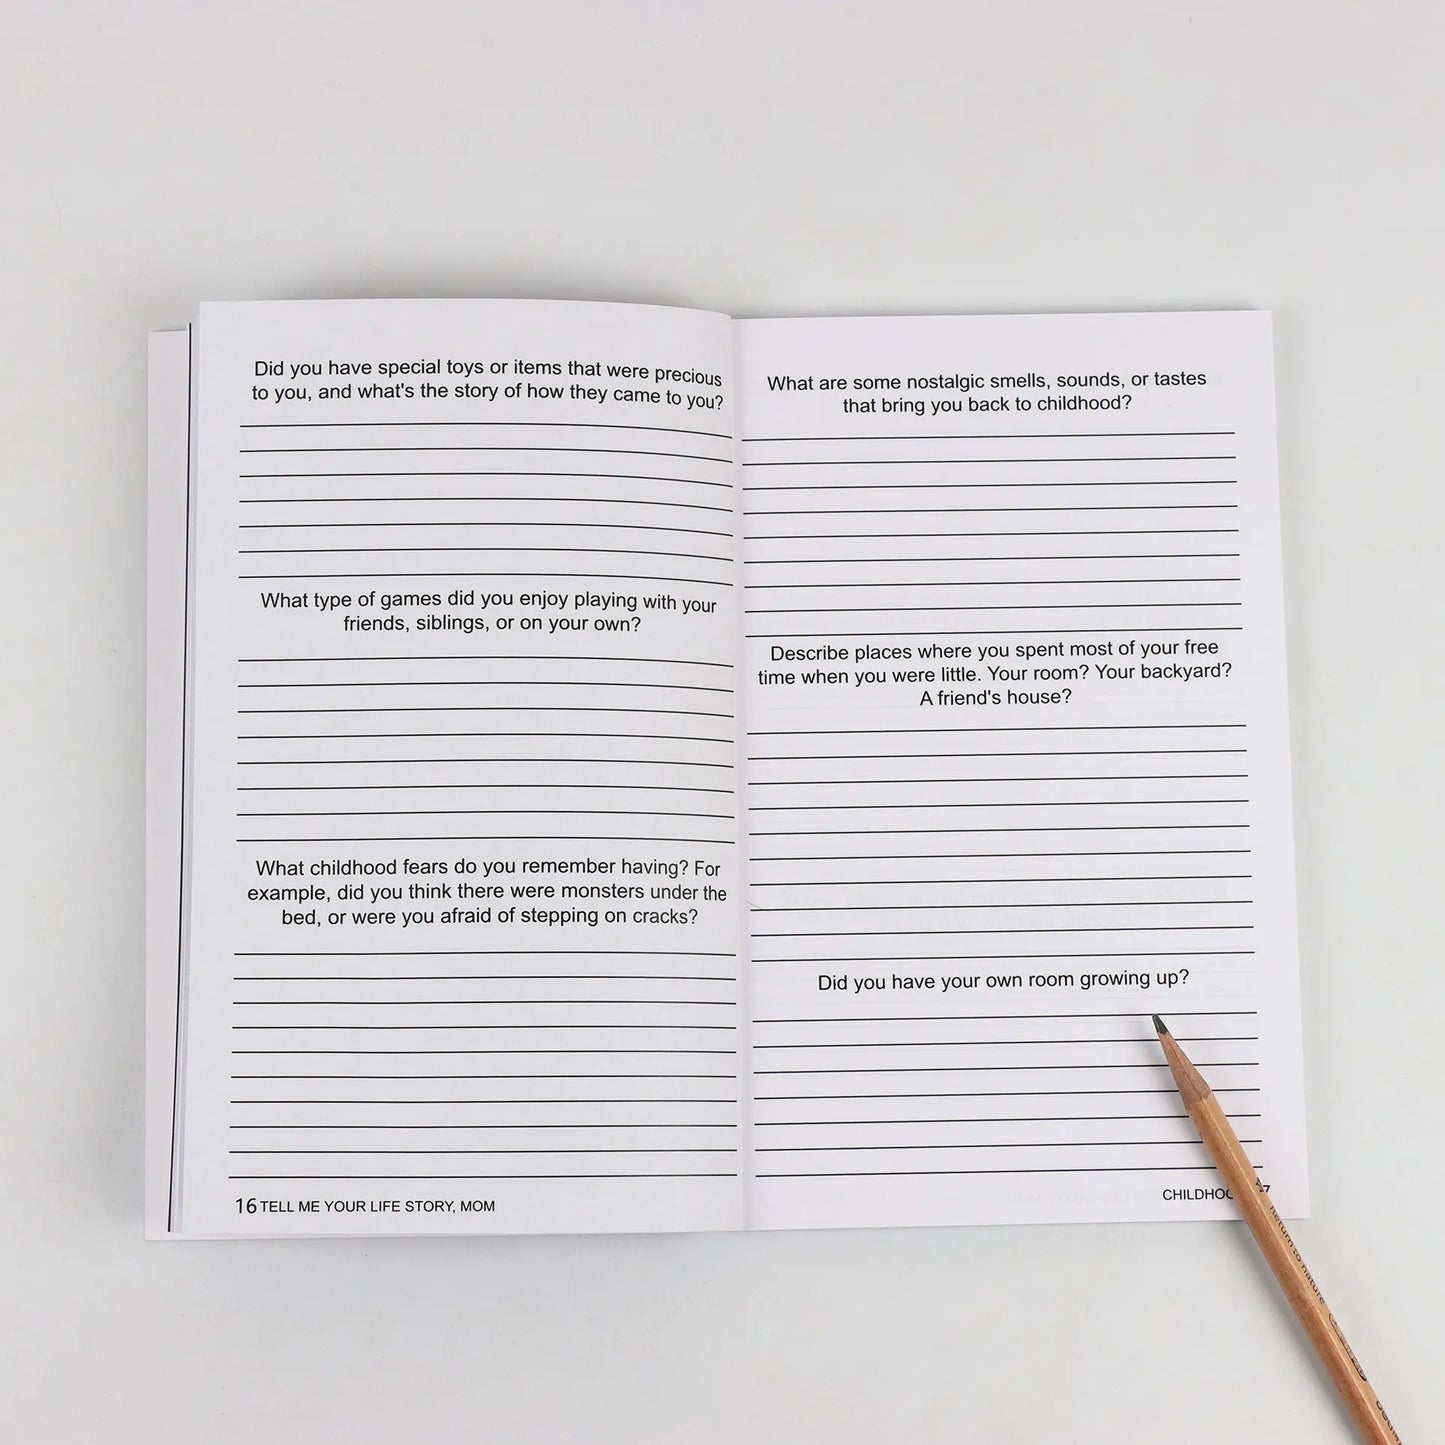 Did you have special toys or items that were precious
to you, and what's the story of how they came to you?
What type of games did you enjoy playing with your
friends, siblings, or on your own?
What childhood fears do you remember having? For
example, did you think there were monsters under the
bed, or were you afraid of stepping on cracks?
16 TELL ME YOUR LIFE STORY, MOM
What are some nostalgic smells, sounds, or tastes
that bring you back to childhood?
Describe places where you spent most of your free
time when you were little. Your room? Your backyard?
A friend's house?
Did you have your own room growing up?
Return to nature